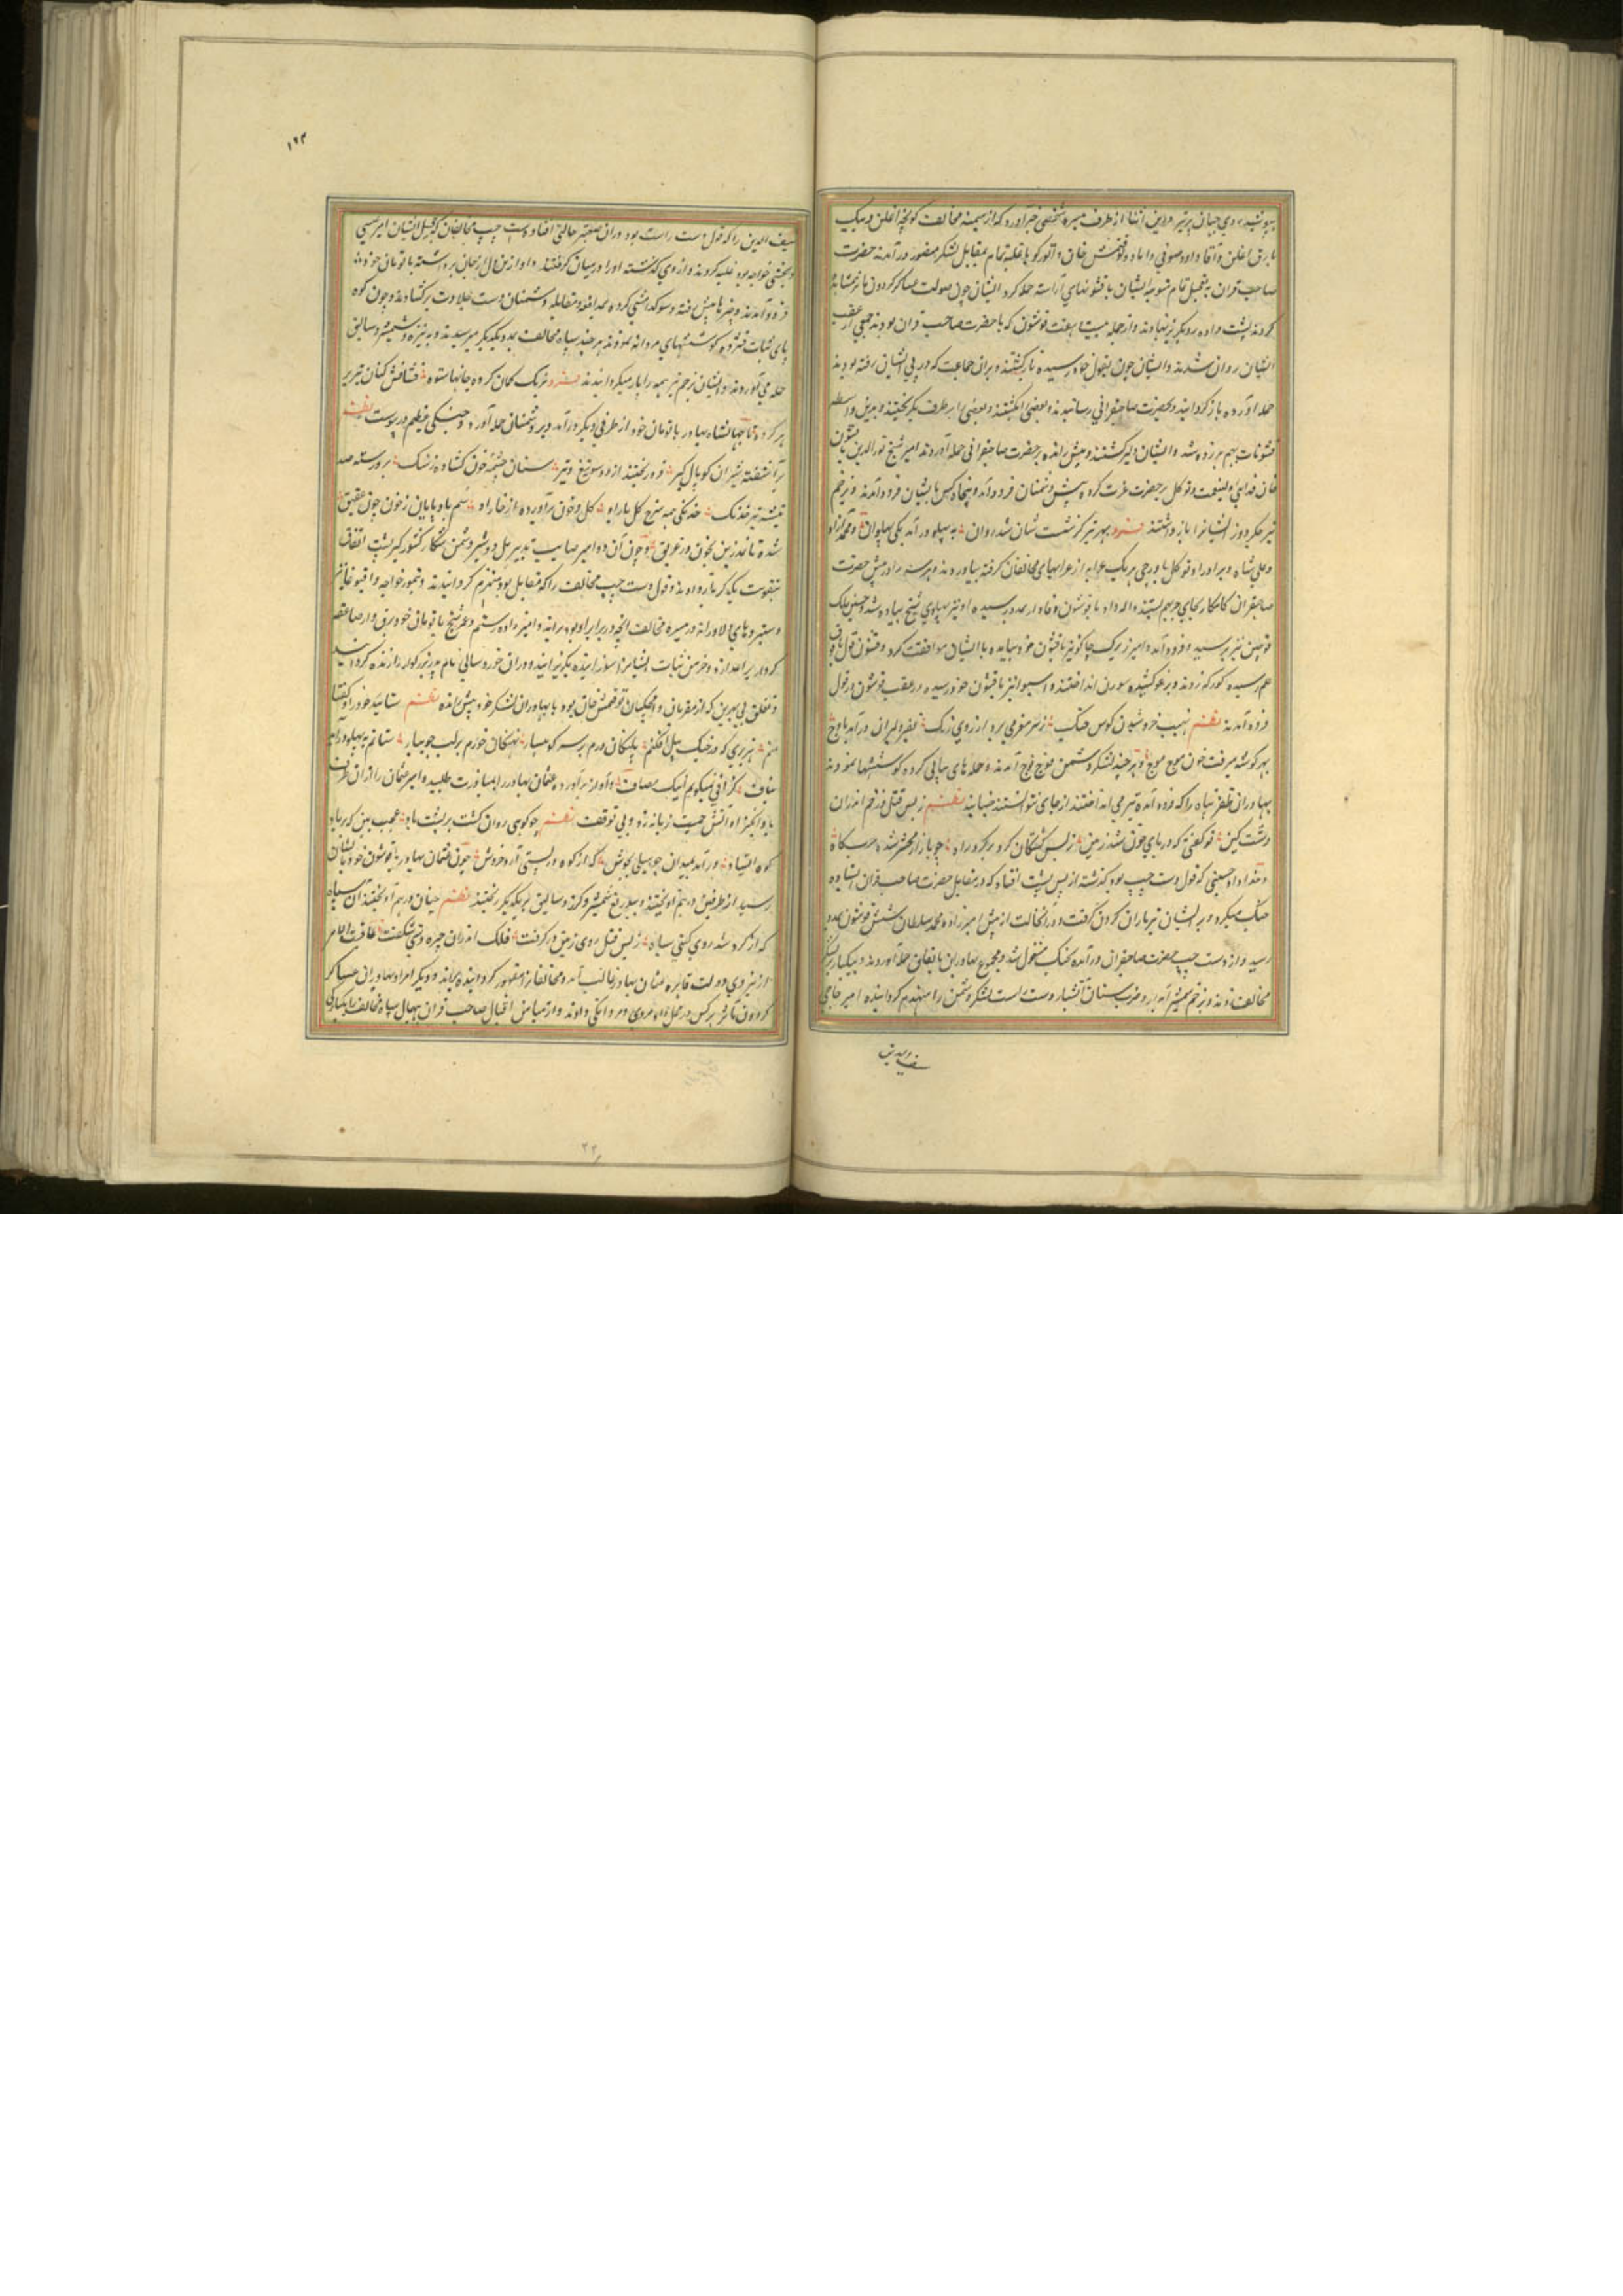 بپوشید روی جهان پرتیر درین اثنا از طرف میسره شخصی خبر آورد که از میمنه مخالف کونچه اغلن و بیک
یارق اغلن و آقتا و داود صوفی داماد توقتمش خان و اتورکو با غلبه تمام بمقابل لشکر منصور درآمدند حضرت
صاحب قران بتعجیل تمام متوجه ایشان با قشونهای آراسته حمله کرد ایشان چون صولت عساکر گردون مآثر مشاهده
کردند پشت داده روی بگریز نهادند و از جمله بیست هفت قوشون که با حضرت صاحب قران بودند جمعی از عقب
ایشان روان شدند و ایشان چون بقول خود رسیدند بازگشتند و بران جماعت که در پی ایشان رفته بودند
حمله آورده بازگردانیدند و بحضرت صاحبقرانی رسانیدند و بعضی را بکشتند و بعضی بر طرف بگریختند و بدین واسطه
قشونات بهم برزده شد و ایشان دلیر گشتند و پیش رانده بر حضرت صاحبقرانی حمله آوردند امیر شیخ نورالدین
جان فدای ولینعمت و توکل بر حضرت عزت کرده پیش دشمنان فرود آمد و پنجاه کس با ایشان فرود آمدند و بزخم
تیر جگردوز ایشانرا باز داشتند فرد بهر تیر کز شست شان شد روان به پهلو درآمد یکی پهلوان و محمد آزاد
و علی شاه و برادر او توکل باورچی هر یک عرابه از عرابهای مخالفان گرفته بیاوردند و هر سه را در پیش حضرت
صاحبقران کامکار بجای چپر بهم بستند و اله داد با قوشون وفادار بمدد رسیده او نیز پهلوی شیخ پیاده شد و حسین ملک
قوچین نیز برسید و فرود آمد و امیر زیرک چاکو نیز با قشون خود بیامد و با ایشان موافقت کرد و قشون قول با
هم رسیده کورکه زدند و برغو کشیده سورن انداختند و استوا نیز با قشون خود رسیده در عقب قوشون در قول
فرود آمدند نظم نهیب خروشیدن کوس جنگ ز سر مغز می برد از روی رنگ نفیر دلیران درآمد باوج
بهر گوشه میرفت خون موج موج و هر چند لشکر دشمن فوج فوج آمدند و حمله های پیاپی کرده کوششها نمودند
بهادران ظفر پناه را که فرود آمده تیر می انداختند از جای نتوانستند جنبانید نظم ز بس قتل و زخم اندران
دشت کین تو گفتی که دریای خون شد زمین ز بس کشتگان گرد بر گرد راه چو بازار محشر شده حربگاه
و خداداد حسینی که قول دست چپ بود گذشته از پس پشت افتاد که در مقابل حضرت صاحب قران ایستاده
جنگ میکرد و بر ایشان تیرباران کردن گرفت و در آن حالت از پیش امیرزاده محمد سلطان شش قوشون بمدد
رسید و از دست چپ حضرت صاحبقران درآمده بجنگ مشغول شد و مجموع بهادران باتفاق حمله آوردند و بیکبار بر
مخالف زدند و بزخم شمشیر آبدار و ضرب سنان آتشبار دست راست لشکر دشمن را منهزم گردانیده امیر حاجی
سیف الدین
۱۶۳
سیف الدین را که قول دست راست بود دران صعبتر حالتی افتاد دست چپ مخالفان که قبل ایشان امیر عیسی
و بخشی خواجه بود غلبه کردند و از وی گذشته او را در میان گرفتند و او از مال از جان برداشته با تومان خود
فرود آمدند و چپرها پیش گرفته و سوکدامشی کرده بمدافعه و مقابله دشمنان دست جلادت برگشادند و چون کوه
پای ثبات فشرده کوششهای مردانه نمودند هر چند سپاه مخالف بمدد یکدیگر میرسیدند و به نیزه و شمشیر و سالیق
حمله می آوردند و ایشان بزخم تیر همه را باز میگردانیدند فرد ترنگ کمان کرده جانها ستوه فشافش کنان تیر بر
هر گروه تا جهانشاه بهادر با تومان خود از طرفی دیگر درآمد و بر دشمنان حمله آورد و جنگی عظیم در پیوست نظم
برآشفته شیران کوپال گیر فرو ریختند از دو سو تیغ و تیر سنان چشمه خون گشاده ز سنگ بر و رسته صد
بیشه تیر خدنگ خدنگی همه سرخ گل بار او گل و خون برآورده از خار او سم بادپایان ز خون چون عقیق
شده تا نمد زین بخون در غریق و چون آن دو امیر صایب تدبیر یل و دو شیر دشمن شکار کشور گیر پشت اتفاق
بتقویت یکدیگر باز دادند و قول دست چپ مخالف را که مقابل بود منهزم گردانیدند و تیمور خواجه واقبوغا نیز
دستبردهای دلاورانه در میسره مخالف آنچه در برابر او بود براند و امیرزاده رستم و عمر شیخ با تومان خود برق وار صاعقه
کردار بر اعدا زد و خرمن ثبات ایشانرا سوزانیده بگریزانید و دران خورد سالی نام پدر بزرگوار را زنده گردانید
و تغلق بی بهرین که از مقربان و ایچکیان توقتمش خان بود با بهادران لشکر خود پیش رانده نظم ستایید خود را و گفتا
منم هژبری که در جنگ پیل افکنم پلنگان درم بر سر کوهسار نهنگان خورم بر لب جویبار ستانم به پهلو درآیم
بناف گزافی نمیگویم اینک مصاف و آواز برآورده عثمان بهادر را بمبارزت طلبید و امیر عثمان را از ان طرف
باد انگیز او آتش حمیت زبانه زد و بی توقفت نظم چو کوهی روان گشت بر پشت باد عجب بین که بر باد
کوه ایستاد درآمد بمیدان چو پیلی بجوش که از کوه در پستی آرد خروش چون عثمان بهادر با قوشون خود بایشان
رسید از طرفین در هم آویختند و بیدریغ شمشیر و گرز و سالیق بر یکدیگر ریختند نظم چنان در هم آویختند آن سپاه
که از گرد شد روی گیتی سیاه ز بس قتل روی زمین در گرفت فلک اندران خیره گشتی شگفت عاقبت الامر
از نیروی دولت قاهره عثمان بهادر غالب آمد و مخالفانرا مقهور گردانیده براند و دیگر امرا و بهادران عساکر
گردون مآثر هر کس در محل خود مردی و مردانگی دادند و از میامن اقبال صاحب قران بیهمال سپاه مخالف بیکبارگی